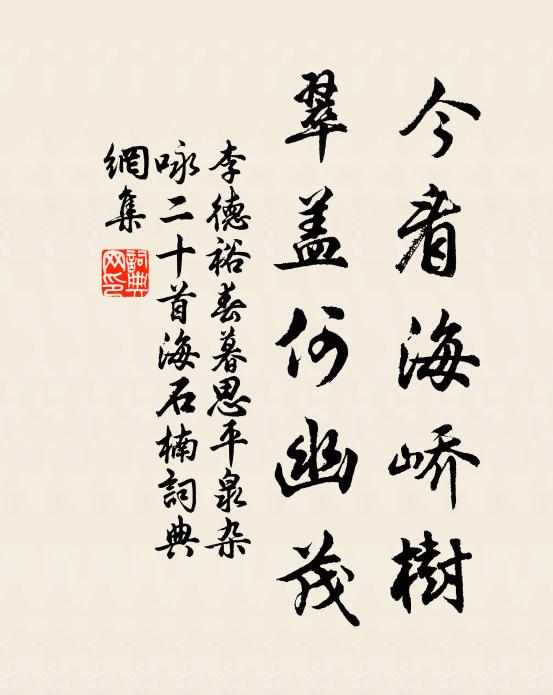 今看海峤樹
翠盖何幽茂
李德裕春暮思平泉杂
咏二十首海石楠詞典
網集
詞典
网印